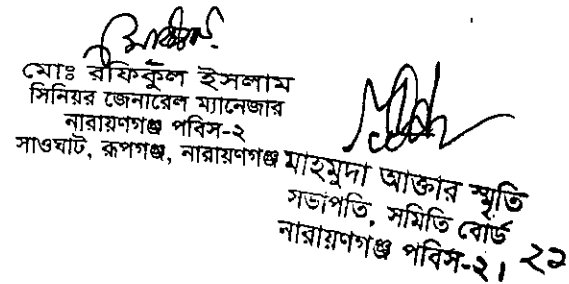 মোঃ রফিকুল ইসলাম
সিনিয়র জেনারেল ম্যানেজার
নারায়ণগঞ্জ পবিস-২
সাওঘাট, রূপগঞ্জ, নারায়ণগঞ্জ
মাহমুদা আক্তার স্মৃতি
সভাপতি, সমিতি বোর্ড
নারায়ণগঞ্জ পবিস-২।
২১